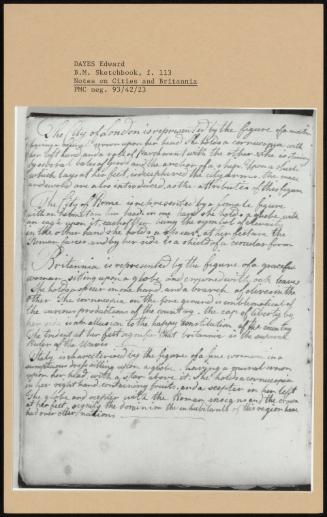 DAYES Edward
B.M. Sketchbook, f. 113
Notes on Cities and Britannia
PMC neg. 93/42/23
The City of London is represented by the figure of a
having a crown upon her head she holds a cornucopia with
her left hand, and a roll of (parchment) with the other. She is
by several bales of goods and the anchor of a ship. Upon a
which lays at her feet, is the city arms. the mace
and sword are also introduced as the attributes of this figure
The City of Rome is represented by a female figure
with an helmet on her head in one hand she holds a globe with
an eagle upon it, each of them being the symbol of eternity
in the other hand she holds a at her feet are the
Roman fasces and by her side is a shield of a circular form
Britannia is represented by the figure of a graceful
woman, sitting upon a globe and crowned with oak leaves
She holds a spear in one hand and a branch of olive in the
other. The cornucopia on the fore ground is emblematical of
the various productions of the country. the cap of liberty by
her side is an allusion to the happy constitution of the country
The trident at her feet signifies that britannia is the
of the
Italy is characterized by the figure of a fine woman in a
sumptuous dress sitting upon a globe. having a mural crown
upon her head with a star above it. She holds a cornucopia
in her right hand, containing fruits. and a scepter in her left
The globe and scepter with the Roman and the crown
at her feet, signify the dominion the inhabitants of this region have
had over other nations